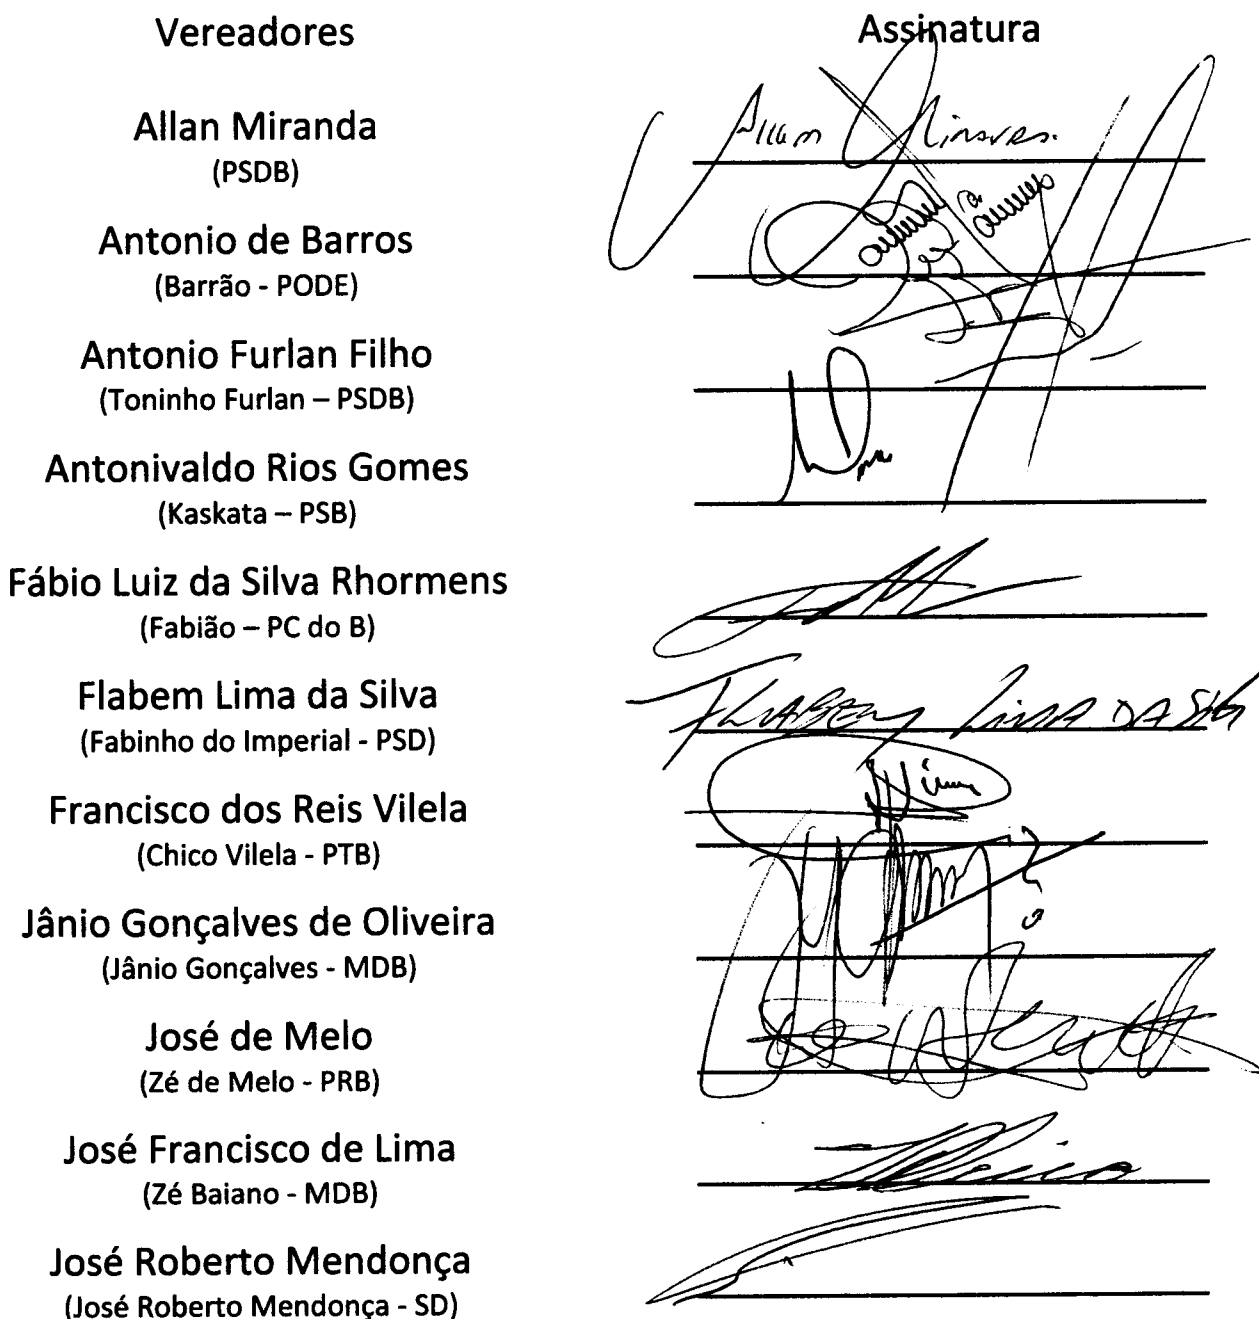 Vereadores Assinatura
Allan Miranda
(PSDB)
Allan Miranda
Antonio de Barros
(Barrão - PODE)
Antonio Furlan Filho
(Toninho Furlan – PSDB)
Antonivaldo Rios Gomes
(Kaskata – PSB)
Fábio Luiz da Silva Rhormens
(Fabião – PC do B)
Flabem Lima da Silva
(Fabinho do Imperial - PSD)
FLABEM LIMA DA SILVA
Francisco dos Reis Vilela
(Chico Vilela - PTB)
Jânio Gonçalves de Oliveira
(Jânio Gonçalves - MDB)
José de Melo
(Zé de Melo - PRB)
José Francisco de Lima
(Zé Baiano - MDB)
José Roberto Mendonça
(José Roberto Mendonça - SD)